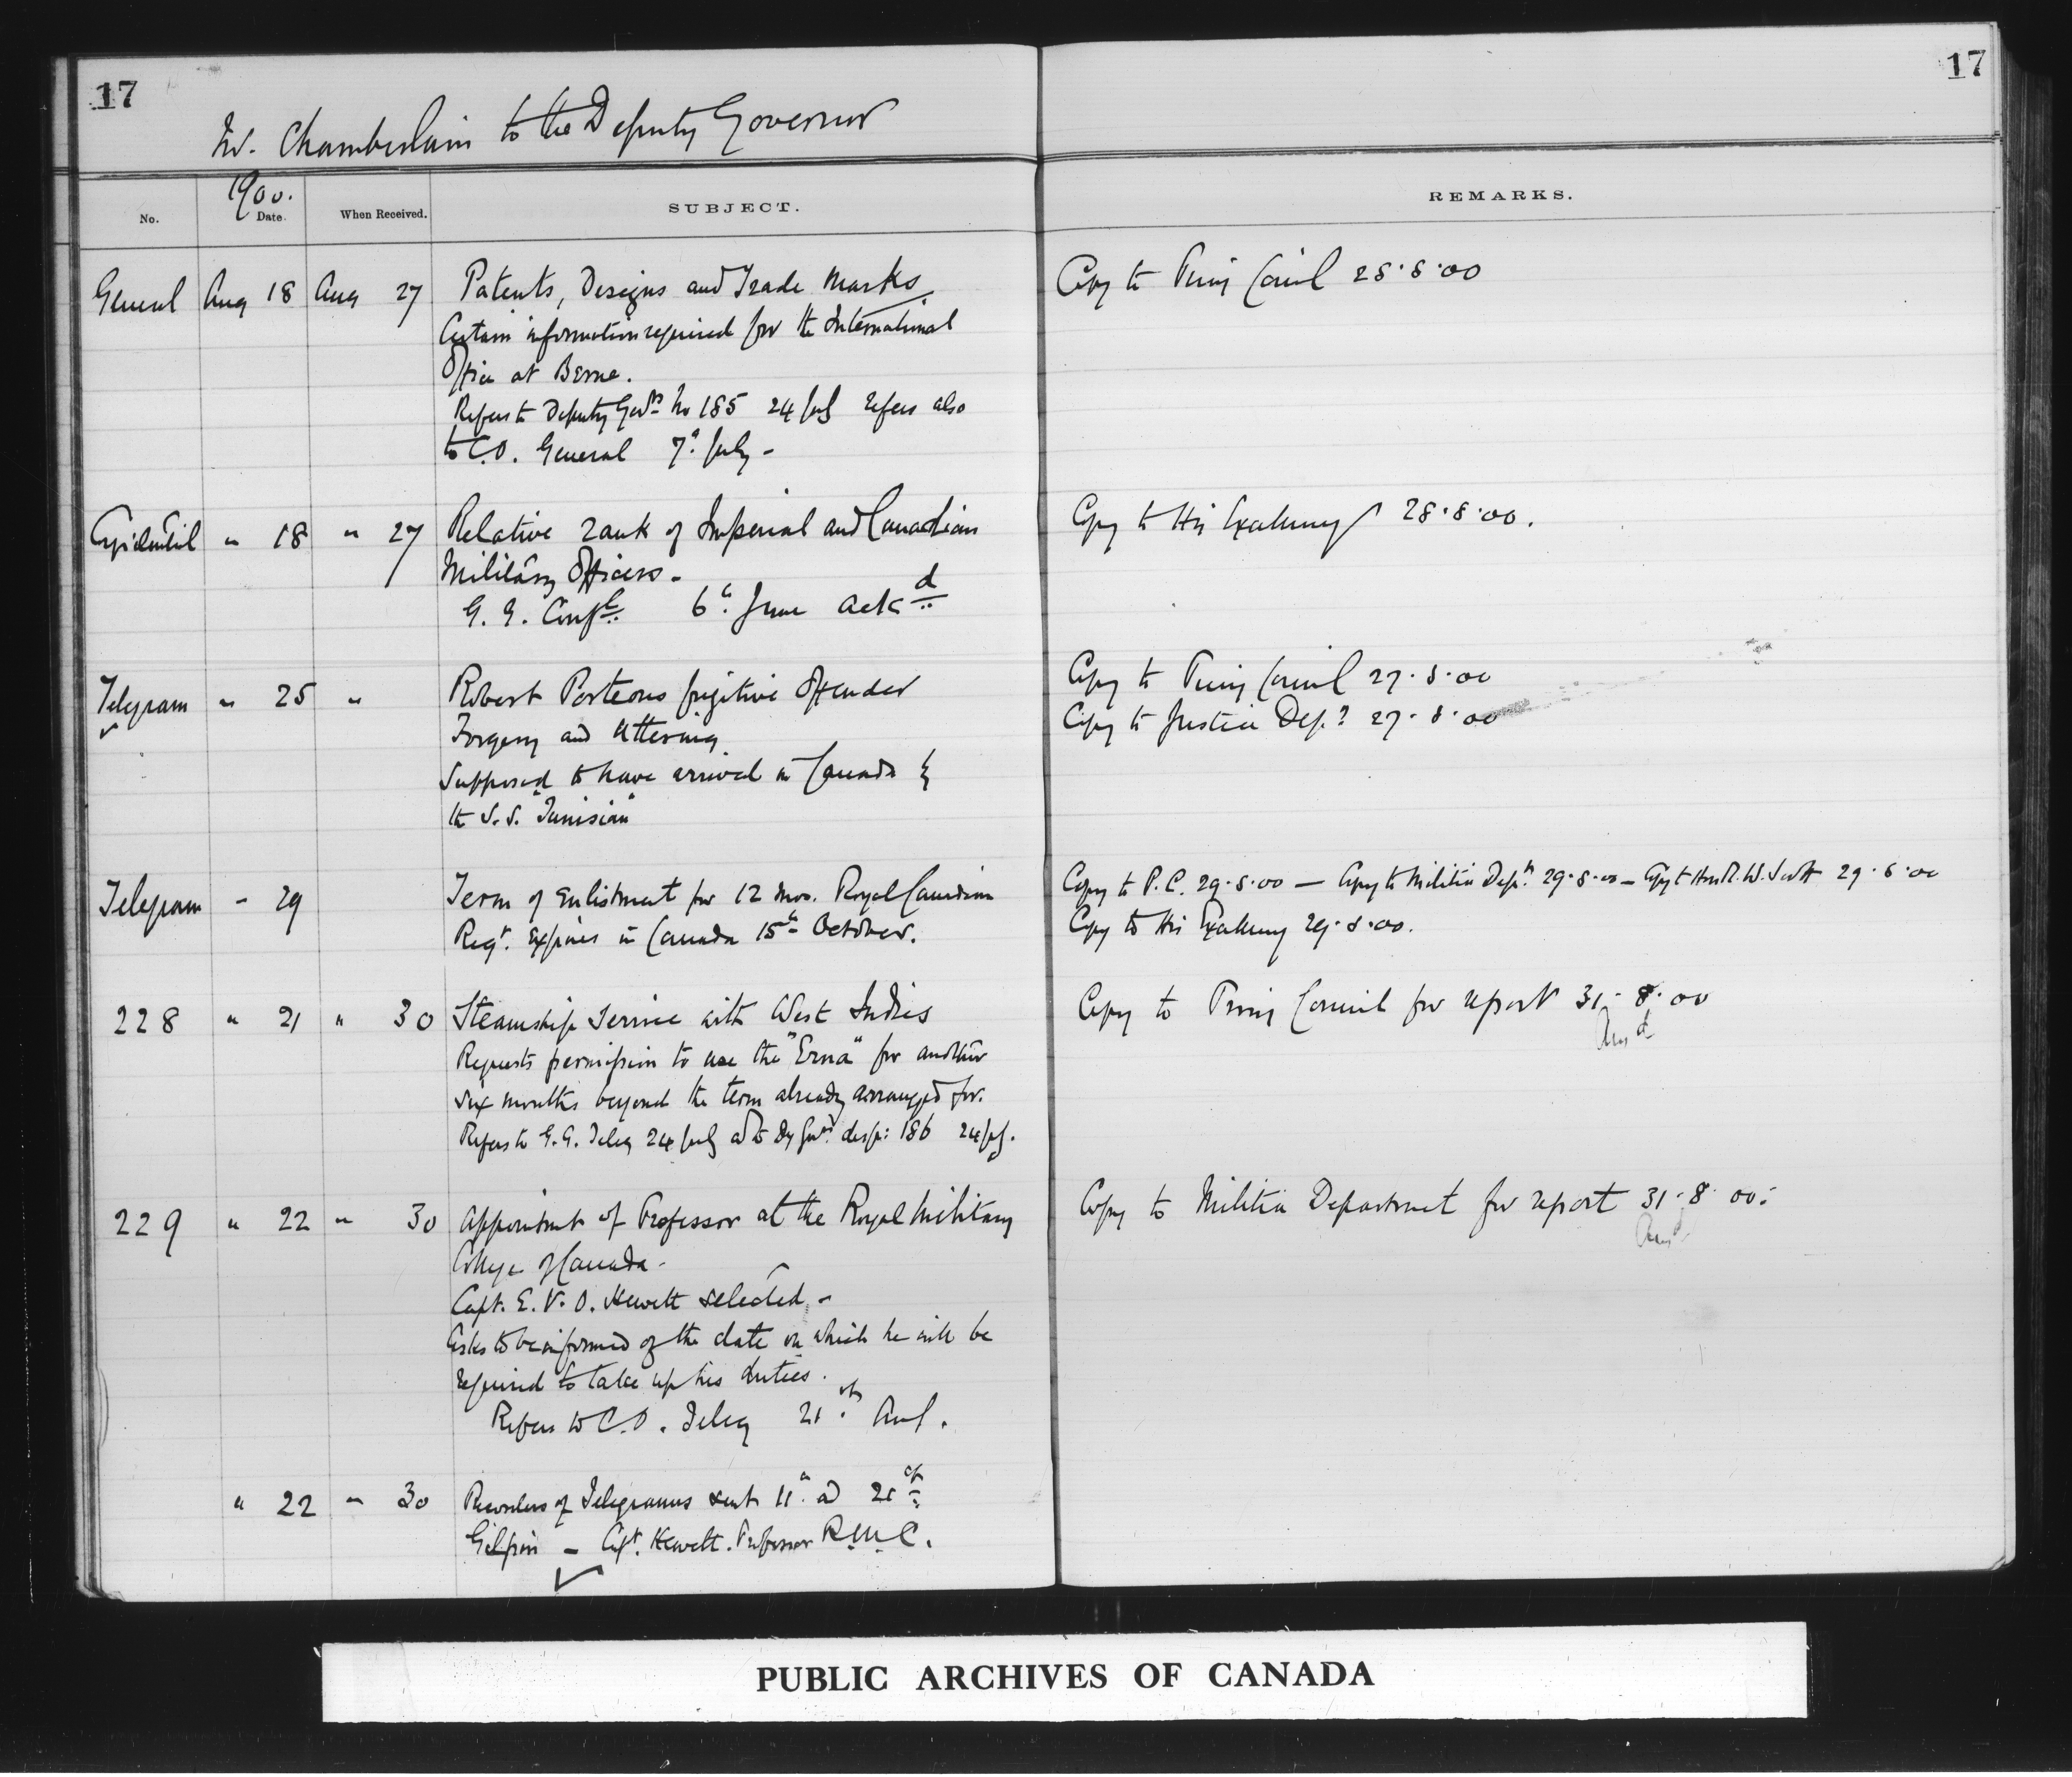 17
17
Mr. Chamberlain to the Deputy Governor
1900.
No. Date. When Received. SUBJECT. REMARKS.
General Aug 18 Aug 27 Patents, Designs and Trade Marks. Copy to Privy Council 28.8.00
Certain information required for the International
Office at Berne.
Refers to Deputy Govrs No 185 24 July refers also
to C.O. General 7th July -
Confidential " 18 " 27 Relative rank of Imperial and Canadian Copy to His Excellency 28.8.00.
Military Officers -
G. G. Confl. 6th June ackd
Telegram " 25 " Robert Porteous fugitive Offender Copy to Privy Council 27.8.00
Forgery and uttering Copy to Justice Dept 27.8.00
Supposed to have arrived in Canada by
the S.S. "Tunisian"
Telegram - 29 Term of Enlistment for 12 mos. Royal Canadian Copy to P.C. 29.8.00 - Copy to Militia Dept 29.8.00 - Copy to Hon R.W. Scott 29.8.00
Regt. Expires in Canada 15th October. Copy to His Excellency 29.8.00.
228 " 21 " 30 Steamship service with West Indies Copy to Privy Council for report 31.8.00
Ansd
Requests permission to use the "Erna" for another
six months beyond the term already arranged for.
Refers to G.G. Teleg 24 July and to Dy Govrs desp: 186 24 July.
229 " 22 " 30 Appointment of Professor at the Royal Military Copy to Militia Department for report 31.8.00.
Ansd
College of Canada -
Capt. E. V. O. Hewett selected -
Asks to be informed of the date on which he will be
required to take up his duties.
Refers to C.O. Teleg 21st Aug.
" 22 " 30 of Telegrams sent 11th and 21st
Gilpin - Capt. Hewett. Professor R.M.C.
PUBLIC ARCHIVES OF CANADA